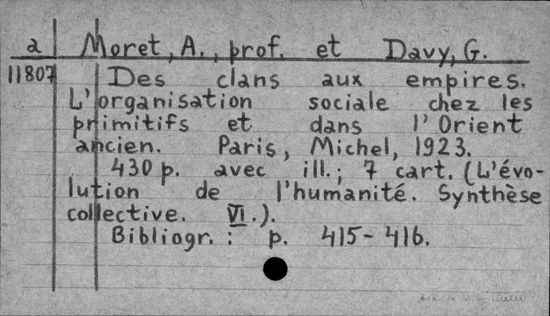 a Moret, A., prof. et Davy, G.
11807 Des clans aux empires.
L'organisation sociale chez les
primitifs et dans l'Orient
ancien. Paris, Michel, 1923.
430 p. avec ill.; 7 cart. (L'évo-
lution de l'humanité. Synthèse
collective. VI.).
Bibliogr.: p. 415-416.